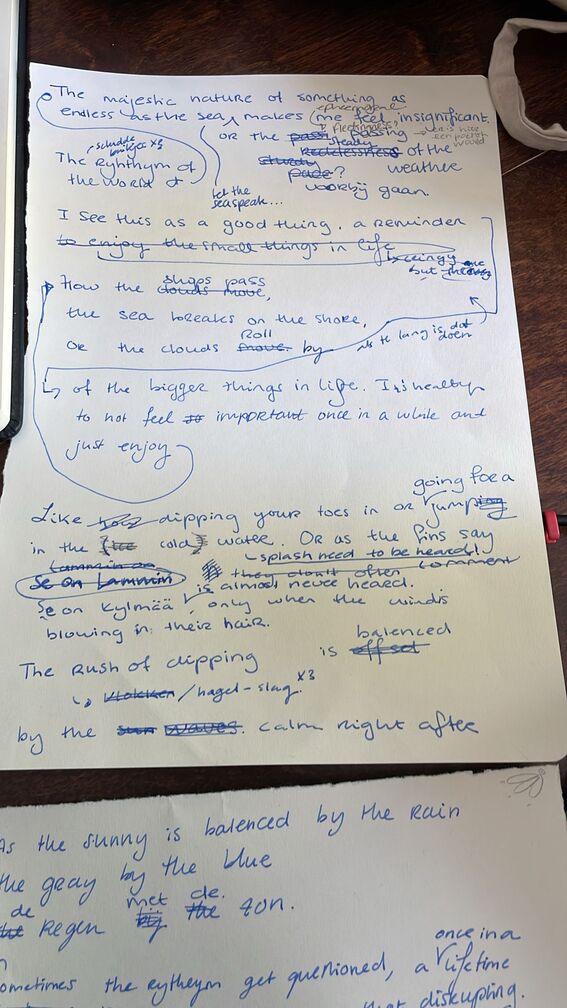 The majestic nature of something as
ephemeral
endless as the sea, makes me feel, insignificant.
schudde
or the pass passing
steady
recklessness of the
The Ryhthym of
steady weather
pace?
the world of
worbij gaan.
let the
sea speak...
I see this as a good thing. a reminder
to enjoy the small things in life
but
ships pass
How the clouds move,
the sea breaks on the shore,
Roll
Or the clouds move by
als t lang is dat
doen
of the bigger things in life. It's healthy
to not feel so important once in a while and
just enjoy
going for a
Like dipping your toes in or jumping
in the (ice cold) water. Or as the Fins say
splash need to be heard!
Lammin on
Se on Lammin they don't often comment
is almost never heard.
Se on Kylmää, only when the wind is
blowing in their hair.
balenced
The Rush of dipping is off set
vlokken/hagel-slag x3
by the sun waves. calm right after
As the sunny is balenced by the rain
the gray by the blue
de met de.
the Regen by the zon.
once in a
ometimes the rythym get questioned, a lifetime
that disrupting.